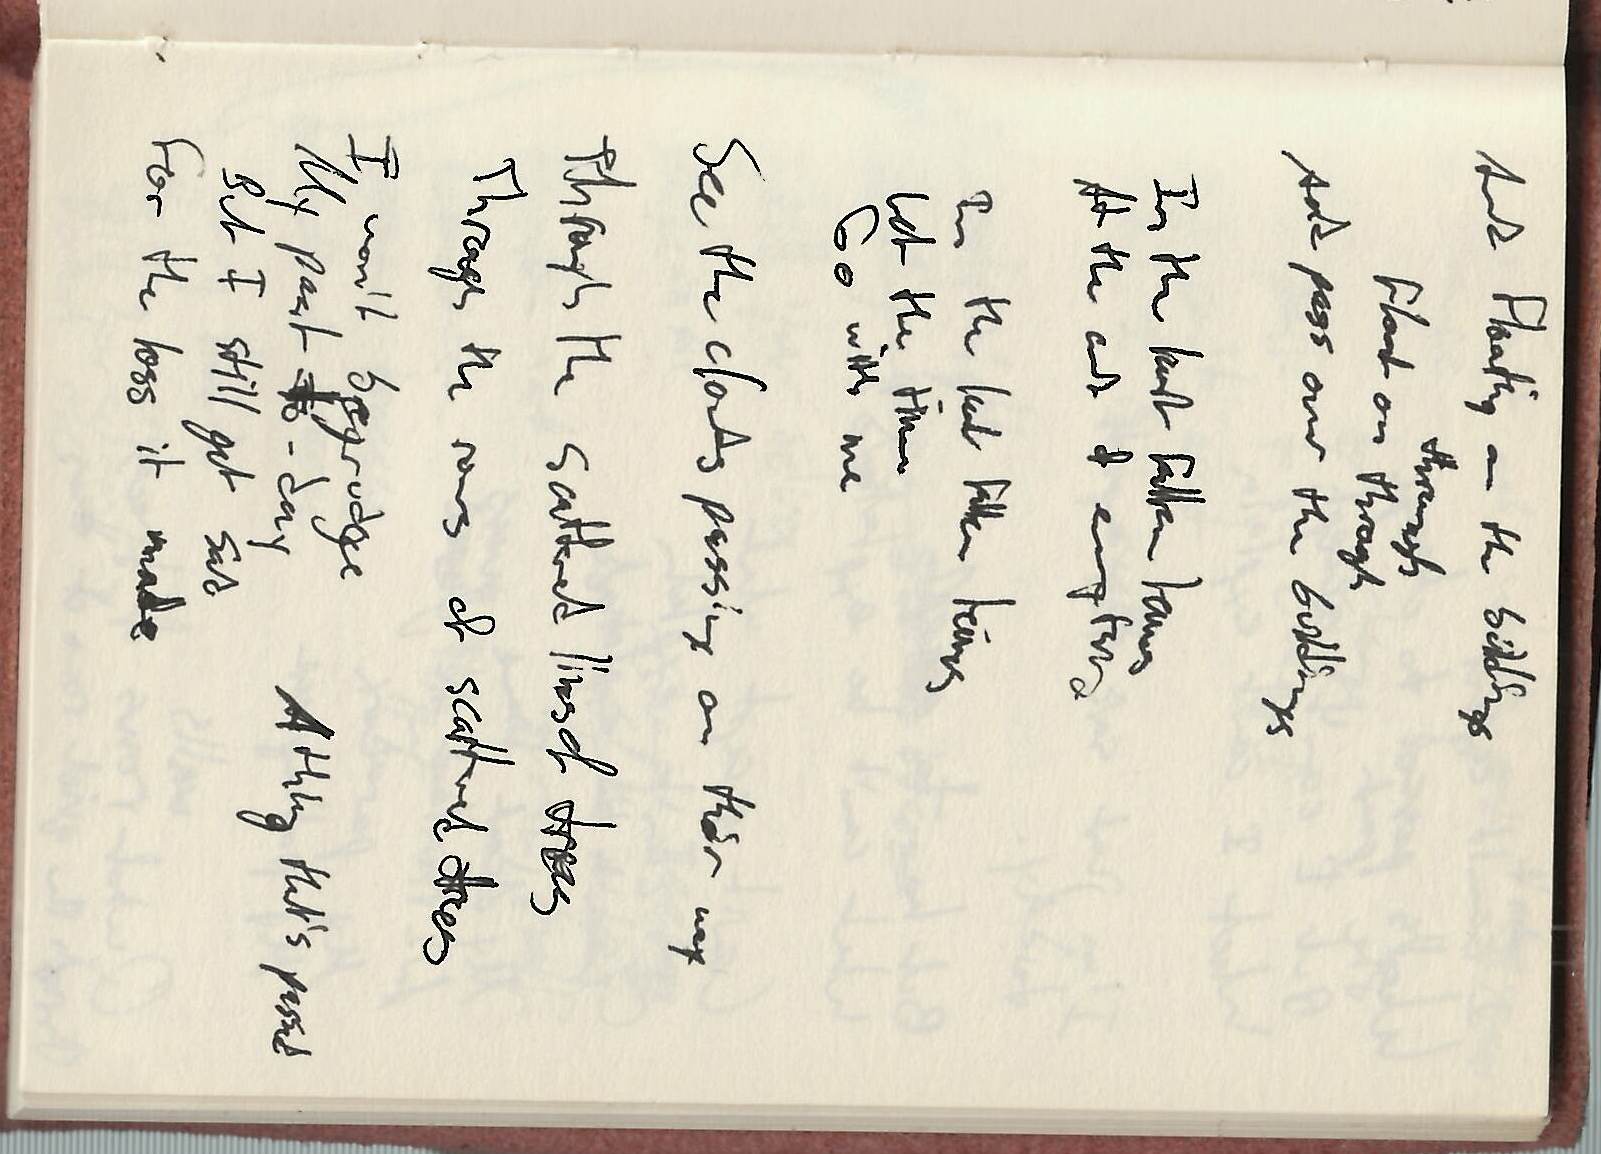 And Floating on the buildings
through
Float on through
And pass over the buildings
In the last fallen
At the end of every
In the last fallen
Let the time
Go with me
See the clouds passing on their way
Through the scattered lines of trees
Through the rows of scattered trees
I won't begrudge
My past to-day
But I still get sad
A thing that's passed
For the loss it made